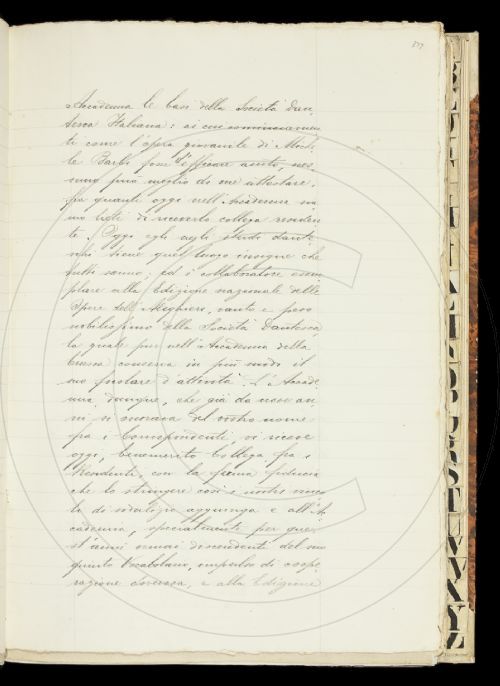 Accademia le basi della Società Dan-
tesca Italiana: ai cui cominciamen-
ti come l'opera giovanile di Miche-
le Barbi fosse d'efficace aiuto nes-
suno può meglio di me attestare,
fra quanti oggi nell'Accademia sia-
mo lieti di riceverlo collega residen-
te. Oggi egli negli studi dante-
schi tiene quel luogo insigne che
tutti sanno; ed è collaboratore esem-
plare alla Edizione nazionale delle
Opere dell'Alighieri, vanto e peso
nobilissimo della Società Dantesca,
la quale pur nell'Accademia della
Crusca conserva in più modi il
suo focolare d'attività. L'Accade-
mia, dunque, che già da nove an-
ni si onorava del vostro nome
fra i Corrispondenti, vi riceve
oggi, benemerito Collega fra i
Residenti, con la ferma fiducia
che lo stringere così i vostri vinco-
li di sodalizio aggiunga e all'Ac-
cademia, specialmente per que-
st'anni ormai discendenti del suo
quinto Vocabolario, impulso di coope-
razione doverosa, e alla Edizione